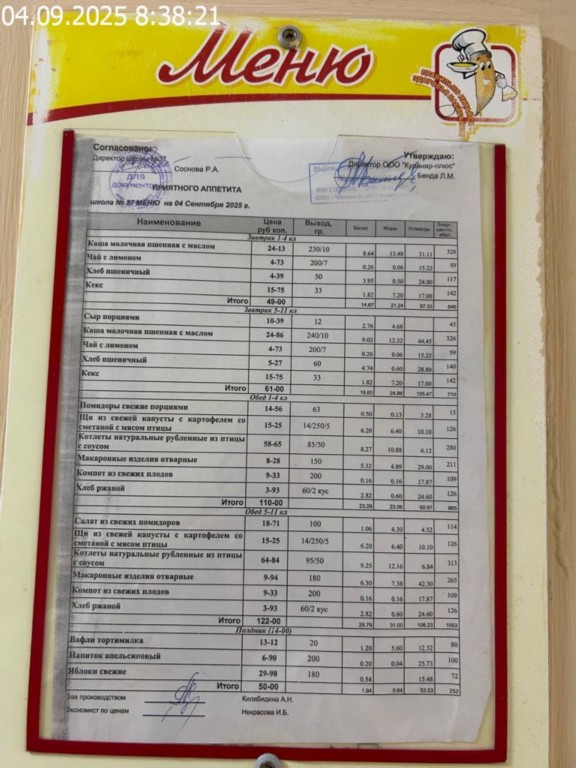 04.09.2025 8:38:21
Меню
Согласовано: Утверждаю:
Директор школы Директор ООО "Кулинар-плюс"
Соснова Р.А. Бенда Л.М.
ДЛЯ
ДОКУМЕНТОВ
ПРИЯТНОГО АППЕТИТА
школа № 37 МЕНЮ на 04 Сентября 2025 г.
Наименование Цена руб коп. Выход, гр. Белки Жиры Углеводы
Завтрак 1-4 кл
Каша молочная пшенная с маслом 24-13 230/10 8.64 13.48 31.11 328
Чай с лимоном 4-73 200/7 0.26 0.06 15.22 59
Хлеб пшеничный 4-39 50 3.95 0.50 24.00 117
Кекс 15-75 33 1.82 7.20 17.00 142
Итого 49-00 14.67 21.24 87.33 646
Завтрак 5-11 кл
Сыр порциями 10-39 12 2.76 4.68 43
Каша молочная пшенная с маслом 24-86 240/10 9.02 12.32 44.45 326
Чай с лимоном 4-73 200/7 0.26 0.06 15.22 59
Хлеб пшеничный 5-27 60 4.74 0.60 28.80 140
Кекс 15-75 33 1.82 7.20 17.00 142
Итого 61-00 18.60 24.86 105.47 710
Обед 1-4 кл
Помидоры свежие порциями 14-56 63 0.50 0.13 3.28 13
Щи из свежей капусты с картофелем со
сметаной с мясом птицы 15-25 14/250/5 6.20 6.40 10.10 126
Котлеты натуральные рубленные из птицы
с соусом 58-65 85/50 8.27 10.88 6.12 280
Макаронные изделия отварные 8-28 150 5.32 4.89 29.00 211
Компот из свежих плодов 9-33 200 0.16 0.16 17.87 109
Хлеб ржаной 3-93 60/2 кус 2.82 0.60 24.60 126
Итого 110-00 23.28 23.06 90.97 865
Обед 5-11 кл
Салат из свежих помидоров 18-71 100 1.06 4.30 4.52 114
Щи из свежей капусты с картофелем со
сметаной с мясом птицы 15-25 14/250/5 6.20 6.40 10.10 126
Котлеты натуральные рубленные из птицы
с соусом 64-84 95/50 9.25 12.16 6.84 313
Макаронные изделия отварные 9-94 180 6.30 7.38 42.30 265
Компот из свежих плодов 9-33 200 0.16 0.16 17.87 109
Хлеб ржаной 3-93 60/2 кус 2.82 0.60 24.60 126
Итого 122-00 25.79 31.00 106.23 1053
Полдник (14-00)
Вафли тортимилка 13-12 20 1.20 5.60 12.32 80
Напиток апельсиновый 6-90 200 0.20 0.04 25.73 100
Яблоки свежие 29-98 180 0.54 15.48 72
Итого 50-00 1.94 5.64 53.53 252
Зав производством Килебидина А.Н.
Экономист по ценам Некрасова И.Б.